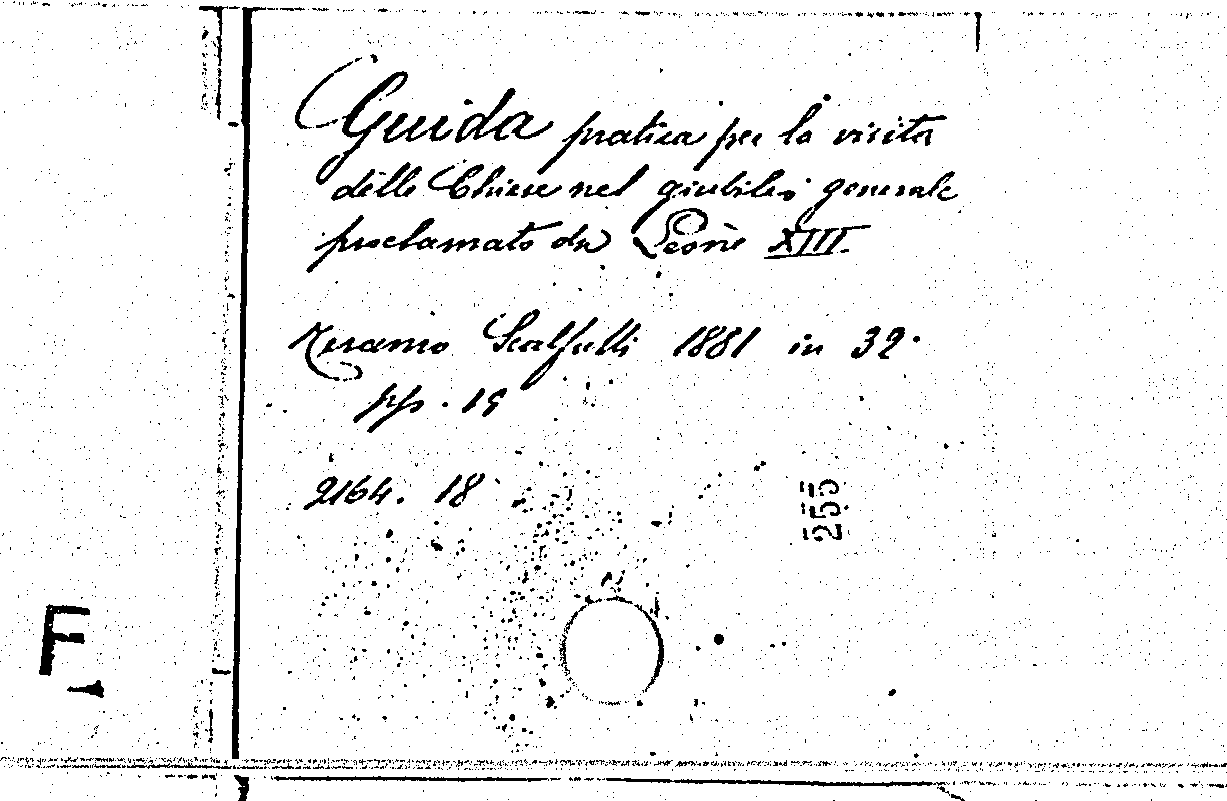 Guida pratica per la visita
delle Chiese nel giubileo generale
proclamato da Leone XIII.
Teramo Scalpelli 1881 in 32.
pp. 19
2164. 18
255
F